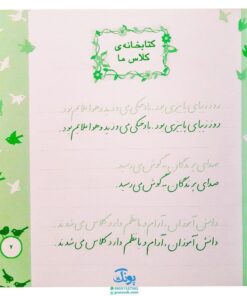 کتابخانه‌ی
کلاس ما
روز زیبای پاییزی بود. باد خنکی می‌وزید و هوا ملایم بود.
روز زیبای پاییزی بود. باد خنکی می‌وزید و هوا ملایم بود.
صدای پرندگان به گوش می‌رسید.
صدای پرندگان به گوش می‌رسید.
دانش‌آموزان، آرام و با نظم وارد کلاس می‌شدند.
دانش‌آموزان، آرام و با نظم وارد کلاس می‌شدند.
۷
پونک